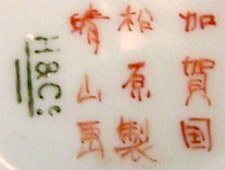 加賀国
松原製
晴山画
H & Co